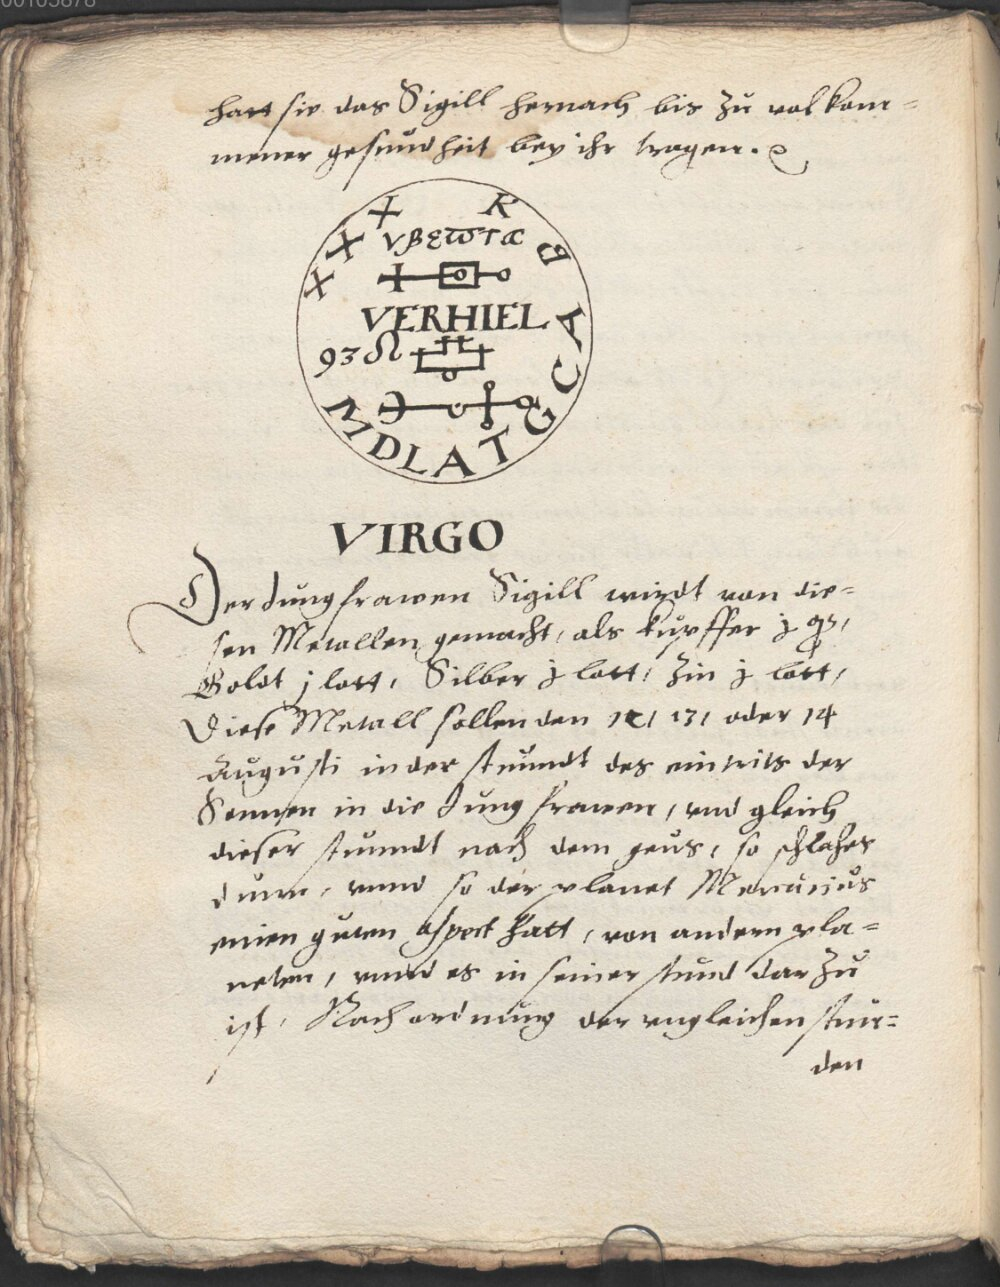 00105878
hatt sie das Sigill hernach bis zů volkom=
mener gesůndheit bey ihr tragen.
X X X K B A C G T A L D M
VERHIEL
93
VIRGO
Der Jůngfrawen Sigill wirdt von die=
sen Metallen gemacht, als Kůpffer j
Goldt j lott, Silber j lott, Zin j lott,
Diese Metall sollen den 12, 13, oder 14
Aůgůsti in der stůndt des eintrits der
Sonnen in die Jůngfrawen, vnd gleich
dieser stůndt nach dem geůs, so
vnnd so der planet Mercůriůs
einen gůten aspect hatt, von andern pla=
neten, vnnd es in seiner stůnd dar Zů
ist, Nach ordnůng der vngleichen stůn=
den